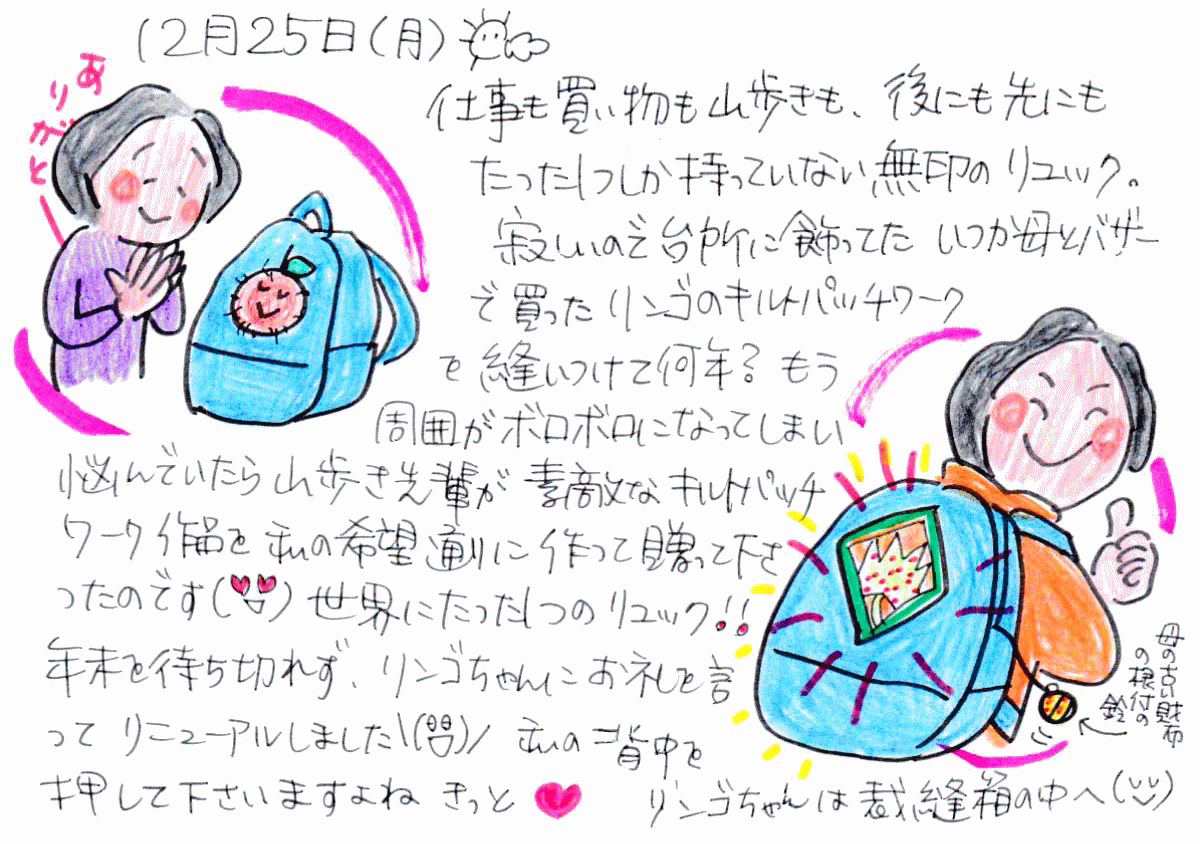 12月25日(月)
ありがと
仕事も買い物も山歩きも、後にも先にも
たった1つしか持っていない無印のリュック。
寂しいので台所に飾ってた いつか母とバザー
で買ったリンゴのキルトパッチワーク
を縫いつけて何年？もう
周囲がボロボロになってしまい
悩んでいたら山歩き先輩が素敵なキルトパッチ
ワーク作品を私の希望通りに作って贈って下さ
ったのです 世界にたった1つのリュック!!
年末を待ち切れず、リンゴちゃんにお礼を言
ってリニューアルしました 私の背中を
押して下さいますよね きっと♥
リンゴちゃんは裁縫箱の中へ
母の古い財布
の根付の
鈴